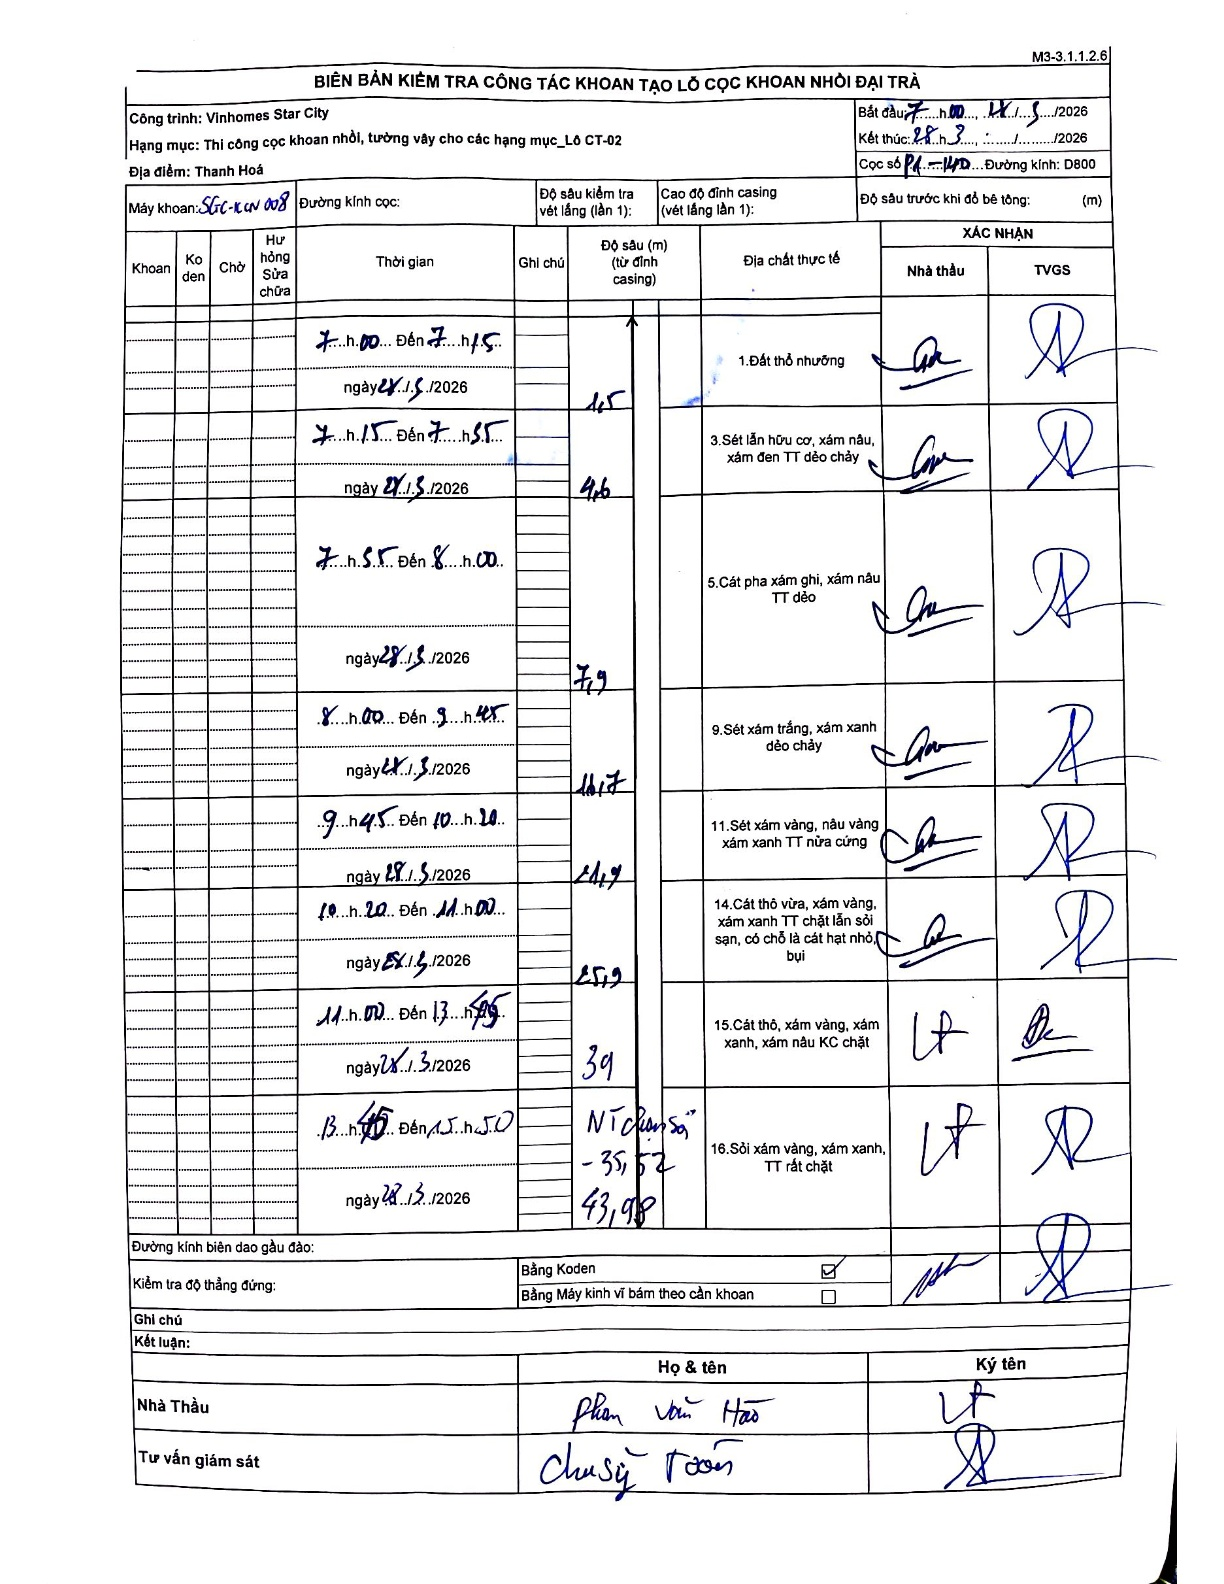 M3-3.1.1.2.6
BIÊN BẢN KIỂM TRA CÔNG TÁC KHOAN TẠO LỖ CỌC KHOAN NHỒI ĐẠI TRÀ
Công trình: Vinhomes Star City
Hạng mục: Thi công cọc khoan nhồi, tường vây cho các hạng mục_Lô CT-02
Địa điểm: Thanh Hoá
Bắt đầu: 7....h.00..., 28./..3.../2026
Kết thúc: 28.h.3...., :...../........./2026
Cọc số P1-140...Đường kính: D800
Máy khoan: SGC-KCN 008
Đường kính cọc:
Độ sâu kiểm tra vét lắng (lần 1):
Cao độ đỉnh casing (vét lắng lần 1):
Độ sâu trước khi đổ bê tông: (m)
Khoan
Ko den
Chờ
Hư hỏng Sửa chữa
Thời gian
Ghi chú
Độ sâu (m) (từ đỉnh casing)
Địa chất thực tế
XÁC NHẬN
Nhà thầu
TVGS
7....h.00... Đến 7....h15..
ngày 28../.3./2026
1,5
1.Đất thổ nhưỡng
7...h.15... Đến 7.....h35..
ngày 28../.3./2026
4,6
3.Sét lẫn hữu cơ, xám nâu, xám đen TT dẻo chảy
7....h.35.. Đến .8....h.00..
ngày 28../.3./2026
7,9
5.Cát pha xám ghi, xám nâu TT dẻo
.8....h.00.. Đến .9...h.45..
ngày 28../.3./2026
16,7
9.Sét xám trắng, xám xanh dẻo chảy
..9...h45.. Đến 10...h.20..
ngày 28../.3./2026
21,9
11.Sét xám vàng, nâu vàng xám xanh TT nửa cứng
.10...h.20.. Đến .11..h.00...
ngày 28./.3./2026
25,9
14.Cát thô vừa, xám vàng, xám xanh TT chặt lẫn sỏi sạn, có chỗ là cát hạt nhỏ, bụi
.11..h.00... Đến 13...h.45..
ngày 28../..3./2026
39
15.Cát thô, xám vàng, xám xanh, xám nâu KC chặt
.13...h.45.. Đến 15..h.50
ngày 28../3../2026
NT chạm sỏi
-35,52
43,98
16.Sỏi xám vàng, xám xanh, TT rất chặt
Đường kính biên dao gầu đào:
Kiểm tra độ thẳng đứng:
Bằng Koden
Bằng Máy kinh vĩ bám theo cần khoan
Ghi chú
Kết luận:
Họ & tên
Ký tên
Nhà Thầu
Phan Văn Hào
Tư vấn giám sát
Chu Sỹ Toàn